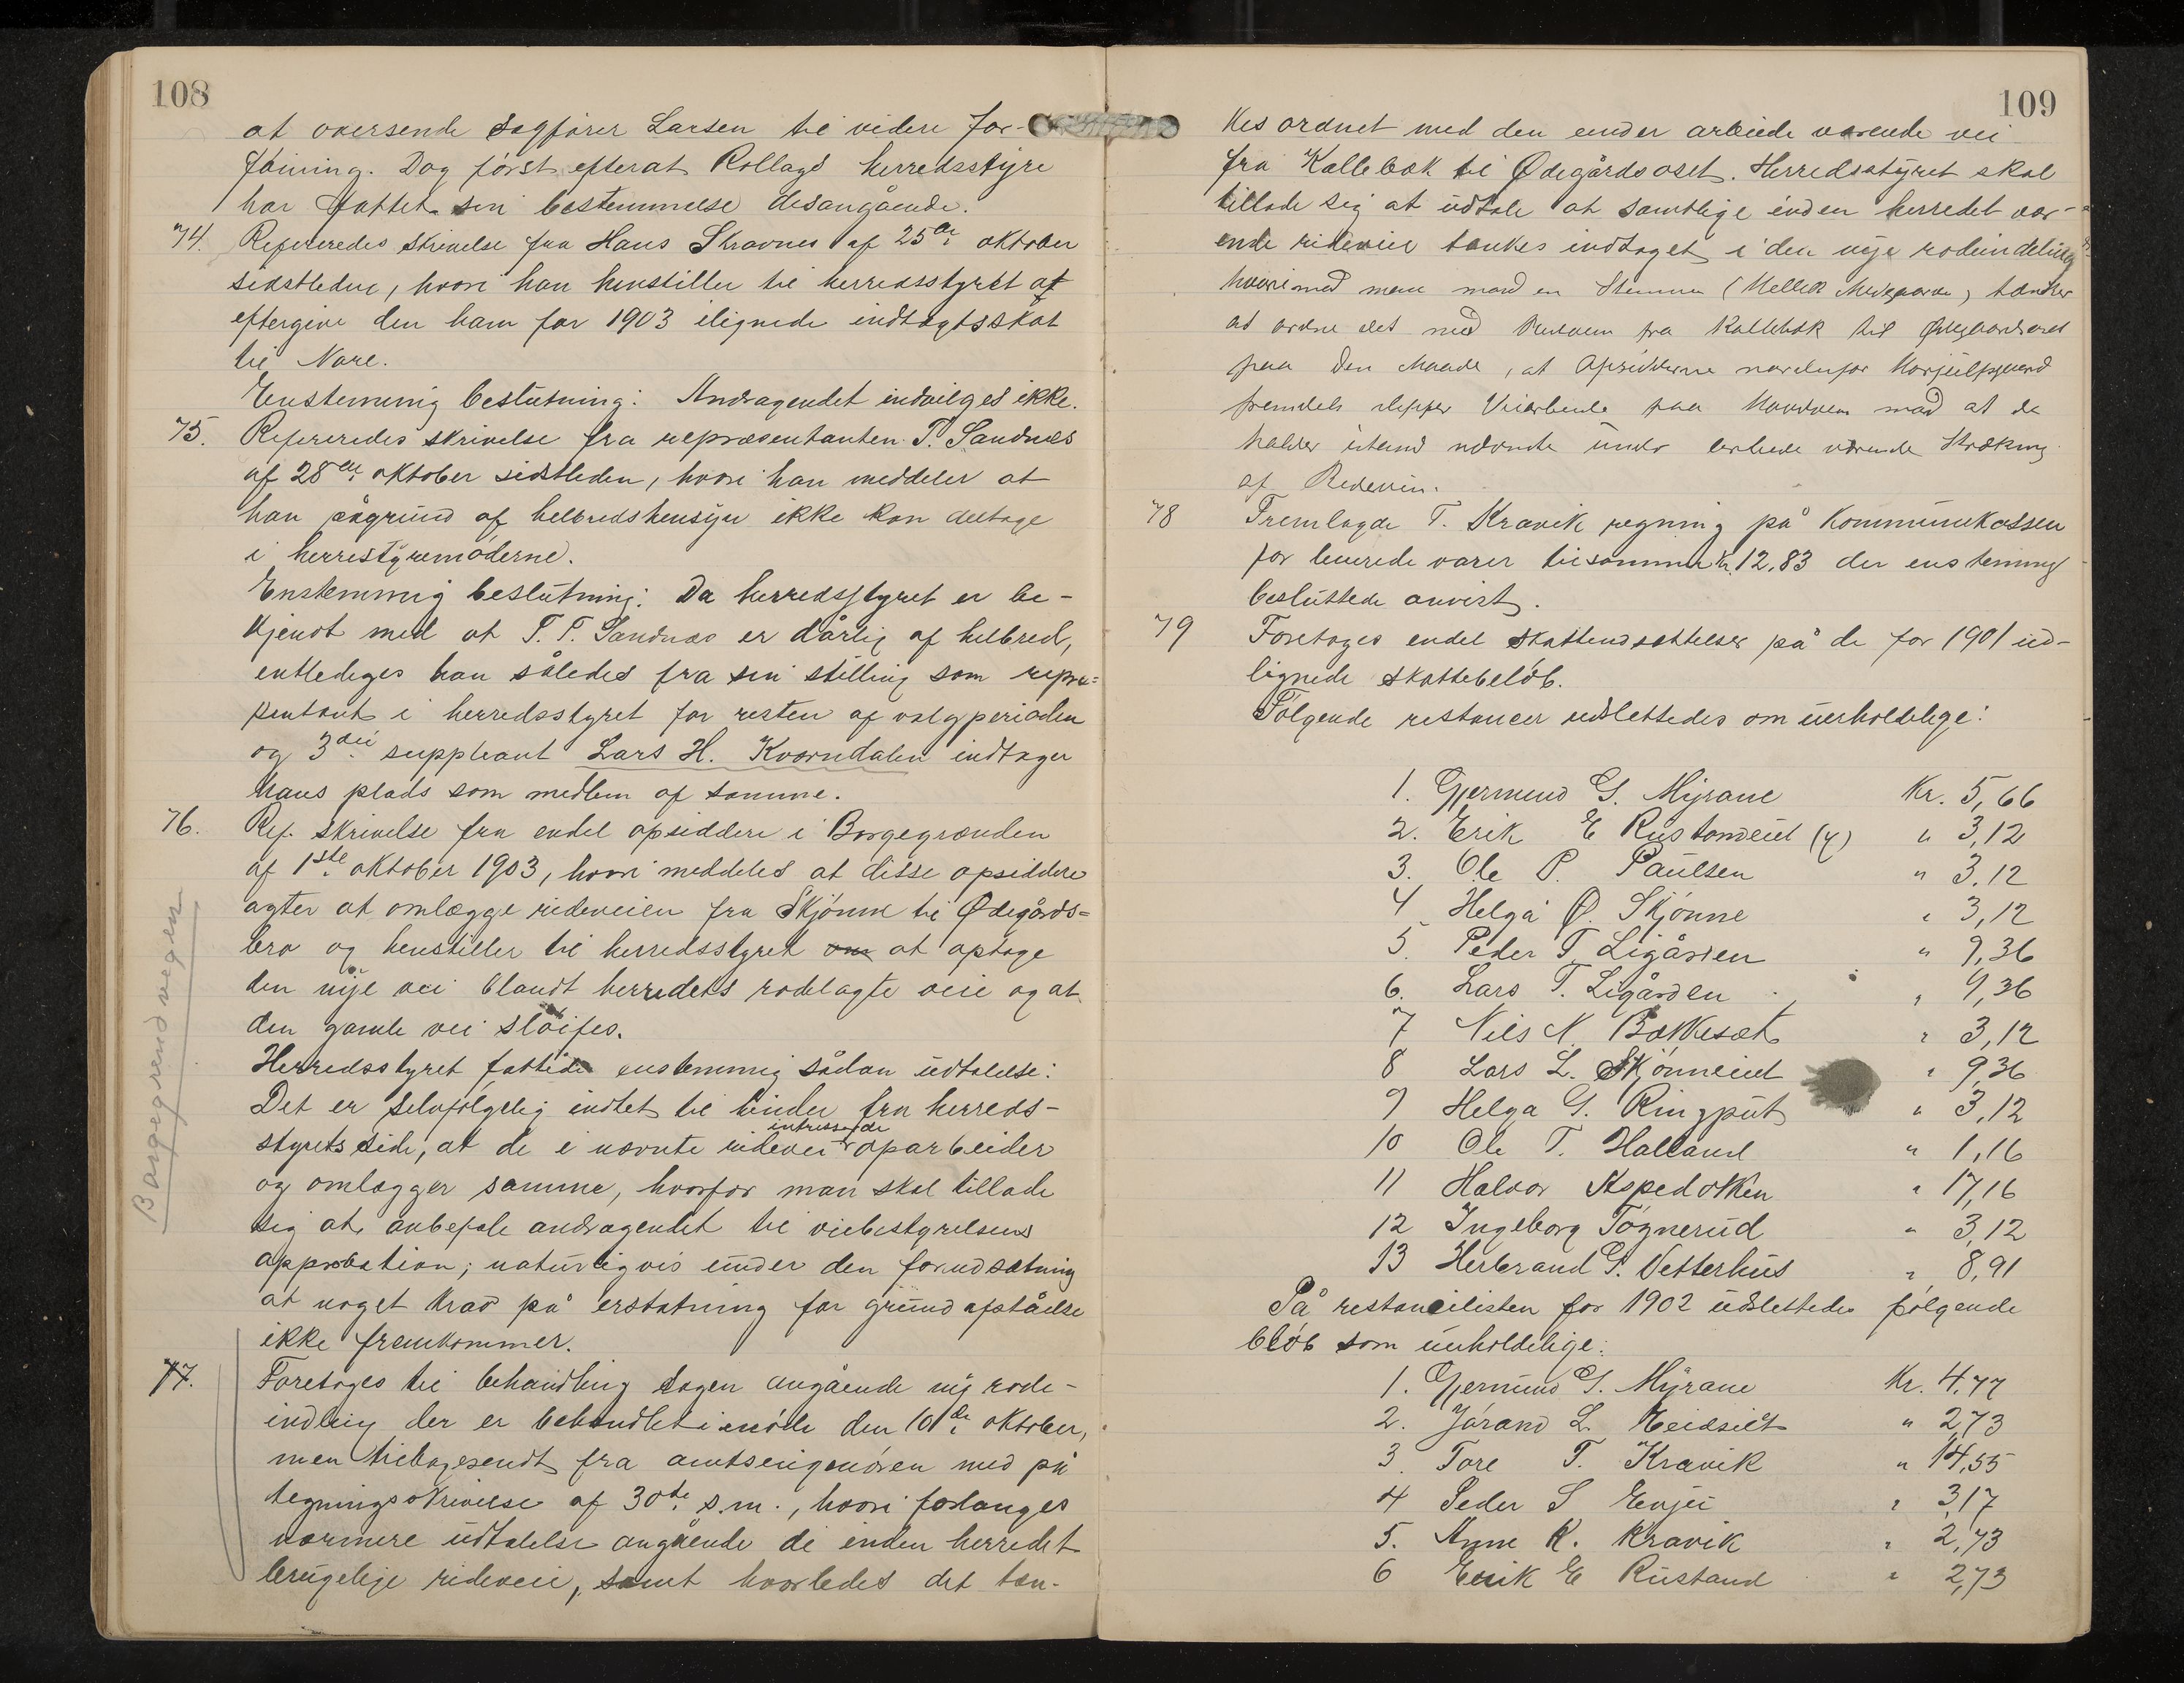 108
at oversende sagfører Larsen til videre for-
føining. Dog først efterat Rollags herredsstyre
har fattet sin bestemmelse desangående.
74. Refereredes skrivelse fra Hans Stravnes af 25de oktober
sidstleden, hvori han henstiller til herredsstyret at
eftergive den ham for 1903 ilignede indtægtsskat
til Nore.
Enstemmig beslutning: Andragendet indvilges ikke.
75. Refereredes skrivelse fra repræsentanten T. Sandnæs
af 28de oktober sidstleden, hvori han meddeler at
han pågrund af helbredshensyn ikke kan deltage
i herrestyremøderne.
Enstemmig beslutning: Da herredsstyret er be-
kjendt med at T. T. Sandnæs er dårlig af helbred,
entlediges han således fra sin stilling som repræ-
sentant i herredsstyret for resten af valgperioden
og 3die suppleant Lars H. Kværndalen indtager
hans plads som medlem af samme.
76. Ref. skrivelse fra endel opsiddere i Borgegrænden
af 1ste oktober 1903, hvori meddeles at disse opsiddere
agter at omlægge rideveien fra Skjönne til Ødegårds-
bro og henstiller til herredsstyret om at optage
den nye vei blandt herredets rodelagte veie og at
den gamle vei sløifes.
Borgegrendvegen
Herredsstyret fattede enstemmig sådan udtalelse:
Det er selvfølgelig indtet til hinder fra herreds-
styrets side, at de i nævnte ridevei intresserede oparbeider
og omlægger samme, hvorfor man skal tillade
sig at anbefale andragendet til veibestyrelsens
approbation; naturligvis under den forudsætning
at noget krav på erstatning for grundafståelse
ikke fremkommer.
77. Foretoges til behandling sagen angående ny rode-
indlig der er behandlet i møde den 10de oktober,
men tilbagesendt fra amtsingeniøren med på
tegningsskrivelse af 30te s.m., hvori forlanges
nærmere udtalelse angående de inden herredet
brugelige rideveie, samt hvorledes det tæn-
109
kes ordnet med den under arbeide værende vei
fra Kallebæk til Ødegårdsoset. Herredsstyret skal
tillade sig at udtale at samtlige inden herredet vær-
ende rideveie tænkes indtaget i den nye rodeindeling
hvorimod man mod en Stemme tænker
at ordne det med Rideveien fra Kallebæk til Ødegaardsoset
paa den Maade, at Opsidderne nordenfor
fremdeles slipper Veiarbeide paa Hovedveien mod at de
holder istand nævnte under arbeide værende Strækning
af Rideveien.
78 Fremlagde T. Kravik regning på Kommunekassen
for leverede varer tilsammen kr. 12,83 der enstemmig
besluttede anvist.
79 Foretoges endel skattendsættelser på de for 1901 ud-
lignede skattebeløb.
Følgende restancer udslettedes om uerholdelige:
1. Gjermund G. Myrane Kr. 5,66
2. Erik E Rustandeiet (y) " 3,12
3. Ole P. Paulsen " 3.12
4 Helga O. Skjönne " 3,12
5. Peder T. Ligården " 9,36
6. Lars T. Ligården " 9,36
7 Nils N. Bakkesæt " 3,12
8 Lars L. Skjönneiet " 9,36
9 Helga G. Ringput " 3,12
10 Ole T. Halland " 1,16
11 Halvor Aspedokken " 17,16
12 Ingeborg Tøgnerud " 3,12
13 Herbrand G. Vetterhus " 8,91
På restancelisten for 1902 udslettedes følgende
bløb som uerholdelige:
1. Gjermund G. Myrane Kr. 4,77
2. Jørand L. " 2,73
3. Tore T. Kravik " 14,55
4 Peder S Evju " 3,17
5. Anne K. Kravik " 2,73
6 Erik E Rustand " 2,73